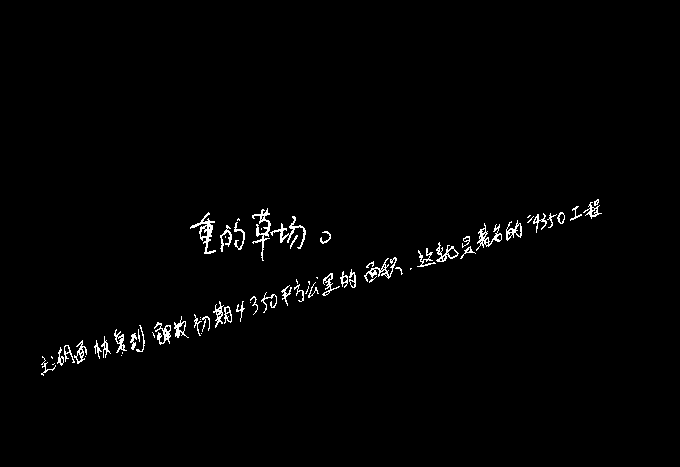 重的草场。
湖面恢复到解放初期4350平方公里的面积.这就是著名的"4350工程